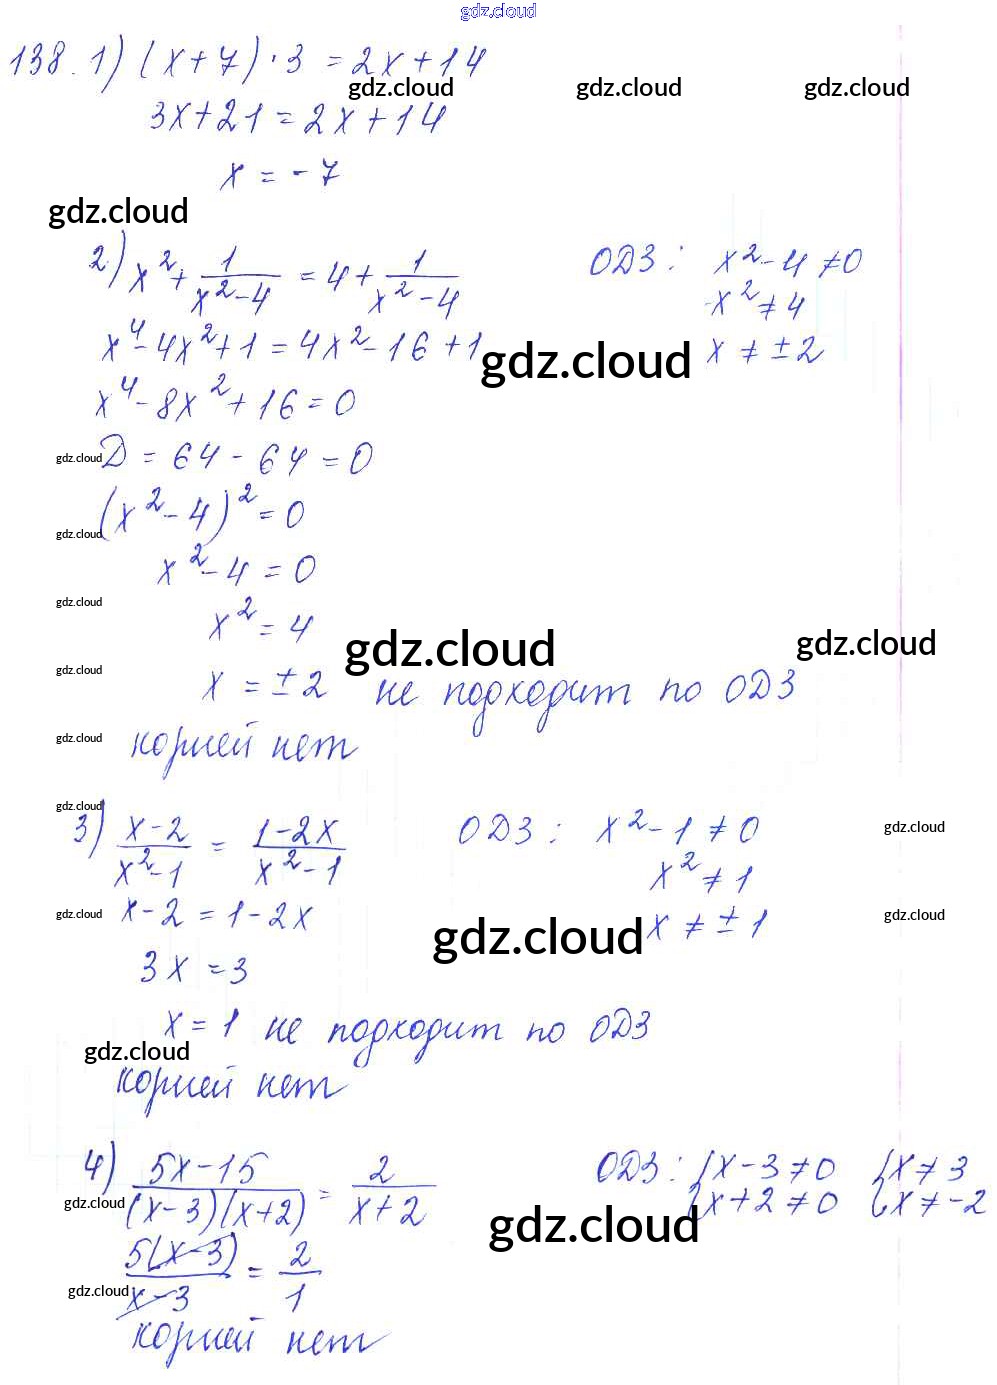 gdz.cloud
138. 1) (x+7)·3 = 2x+14
gdz.cloud gdz.cloud gdz.cloud
3x+21 = 2x+14
x = -7
gdz.cloud
2) x² + 1/(x²-4) = 4 + 1/(x²-4) ОДЗ: x²-4 ≠ 0
x² ≠ 4
x⁴-4x²+1 = 4x²-16+1 gdz.cloud x ≠ ±2
x⁴-8x²+16 = 0
gdz.cloud Д = 64-64 = 0
(x²-4)² = 0
gdz.cloud
x²-4 = 0
gdz.cloud
x² = 4
gdz.cloud gdz.cloud
gdz.cloud
x = ±2 не подходит по ОДЗ
gdz.cloud корней нет
gdz.cloud
3) (x-2)/(x²-1) = (1-2x)/(x²-1) ОДЗ: x²-1 ≠ 0 gdz.cloud
x² ≠ 1
gdz.cloud x-2 = 1-2x gdz.cloud x ≠ ±1 gdz.cloud
3x = 3
x = 1 не подходит по ОДЗ
gdz.cloud
корней нет
4) (5x-15)/((x-3)(x+2)) = 2/(x+2) ОДЗ: {x-3 ≠ 0 {x ≠ 3
gdz.cloud {x+2 ≠ 0 {x ≠ -2
gdz.cloud
5(x-3)/(x-3) = 2/1
gdz.cloud
корней нет